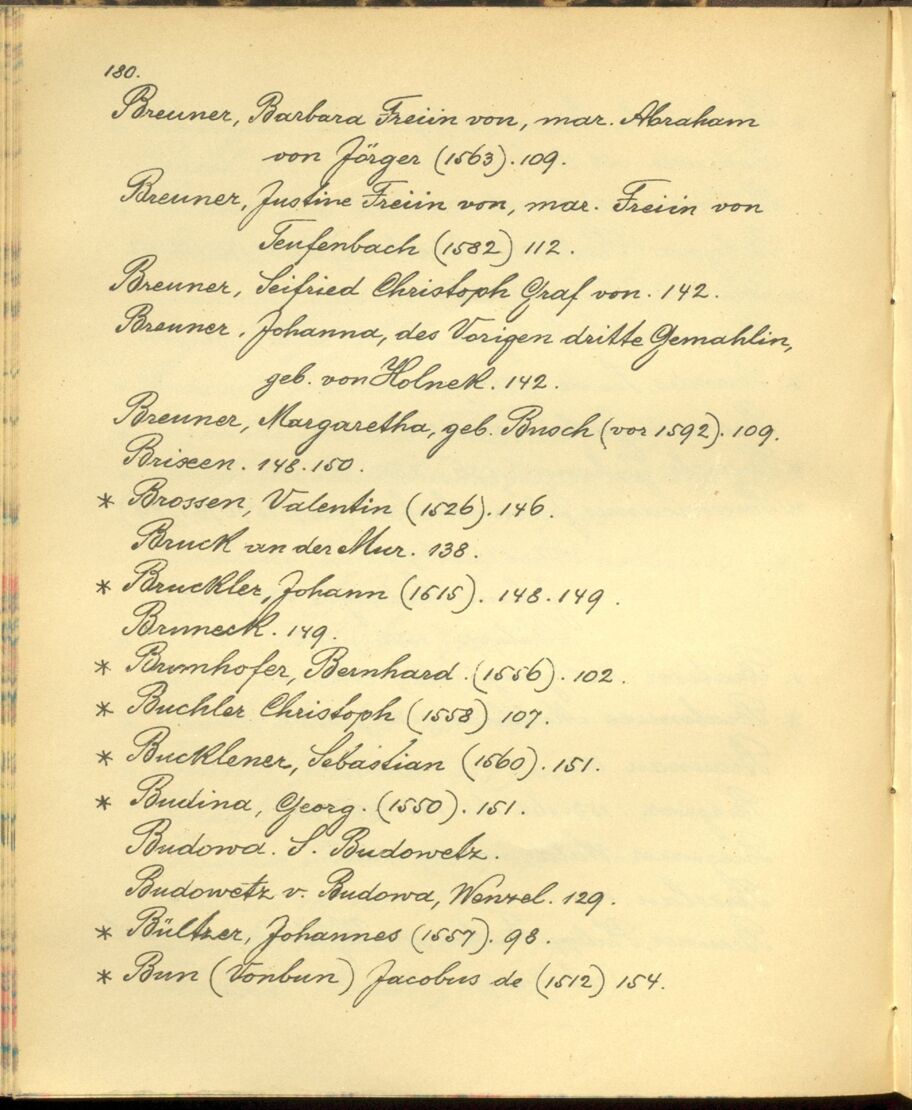 180.
Breuner, Barbara Freiin von, mar. Abraham
von Jörger (1563). 109.
Breuner, Justine Freiin von, mar. Freiin von
Teufenbach (1582) 112.
Breuner, Seifried Christoph Graf von. 142.
Breuner. Johanna, des Vorigen dritte Gemahlin,
geb. von Holnek. 142.
Breuner, Margaretha, geb. Busch (vor 1592). 109.
Brixen. 148. 150.
* Brossen, Valentin (1526). 146.
Bruck an der Mur. 138.
* Bruckler, Johann (1515). 148. 149.
Bruneck. 149.
* Brunhofer, Bernhard. (1556). 102.
* Buchler Christoph (1558) 107.
* Bucklener, Sebastian (1560). 151.
* Budina, Georg. (1550). 151.
Budowa. S. Budowetz.
Budowetz v. Budowa, Wenzel. 129.
* Bültzer, Johannes (1557). 98.
* Bun (Vonbun) Jacobus de (1512) 154.